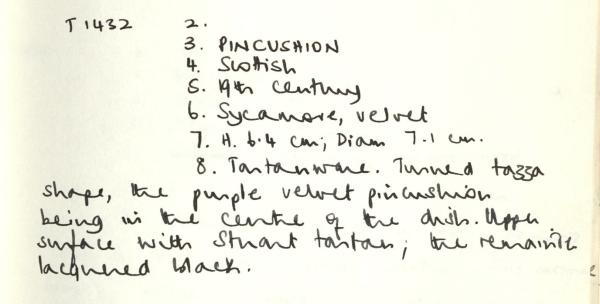 T 1432 2.
3. PINCUSHION
4. Scottish
5. 19th century
6. Sycamore, velvet
7. H. 6.4 cm; Diam 7.1 cm.
8. Tartanware. Turned tazza
shape, the purple velvet pincushion
being in the centre of the dish. Upper
surface with Stuart tartan; the remainder
lacquered black.